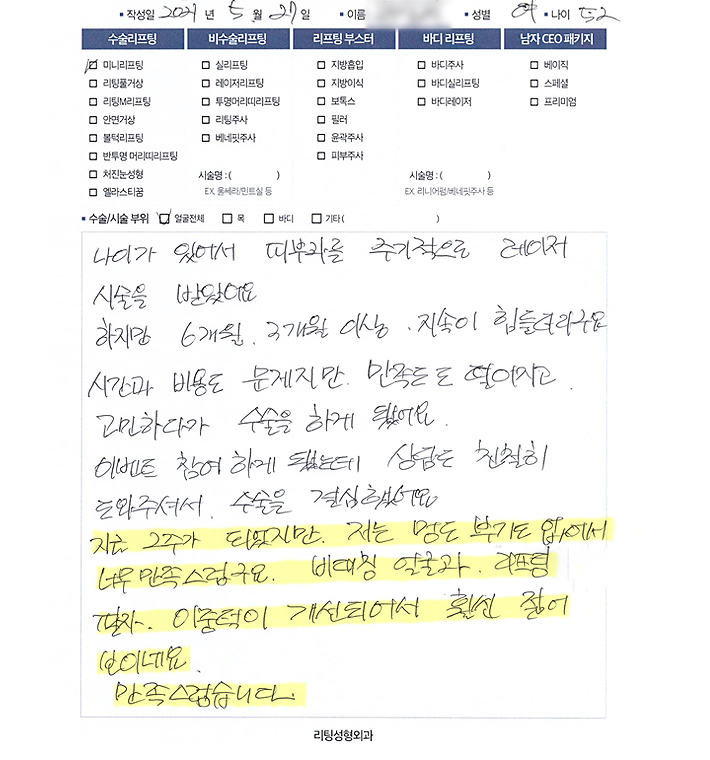 ▪ 작성일 2021 년 5 월 27 일 ▪ 이름 ▪ 성별 여 ▪ 나이 52
수술리프팅 비수술리프팅 리프팅 부스터 바디 리프팅 남자 CEO 패키지
☑ 미니리프팅 □ 실리프팅 □ 지방흡입 □ 바디주사 □ 베이직
□ 리팅풀거상 □ 레이저리프팅 □ 지방이식 □ 바디실리프팅 □ 스페셜
□ 리팅M리프팅 □ 투명머리띠리프팅 □ 보톡스 □ 바디레이저 □ 프리미엄
□ 안면거상 □ 리팅주사 □ 필러
□ 볼턱리프팅 □ 베네핏주사 □ 윤곽주사
□ 반투명 머리띠리프팅 □ 피부주사
□ 처진눈성형 시술명 : ( ) 시술명 : ( )
□ 엘라스티꿈 EX. 울쎄라/민트실 등 EX. 리니어펌/베네핏주사 등
▪ 수술/시술 부위 ☑ 얼굴전체 □ 목 □ 바디 □ 기타 ( )
나이가 있어서 피부과를 주기적으로 레이저
시술을 받았어요
하지만 6개월, 3개월 이상. 지속이 힘들더라구요
시간과 비용도 문제지만. 만족도도 떨어지고.
고민하다가 수술을 하게 됐어요.
이벤트 참여하게 됐는데 상담도 친절히
도와주셔서. 수술을 결심했어요
지금 2주가 되었지만. 저는 멍도 부기도 없어서
너무 만족스럽구요. 비대칭 얼굴과. 리프팅
팔자. 이중턱이 개선되어서 훨씬 젊어
보이네요.
만족스럽습니다.
리팅성형외과